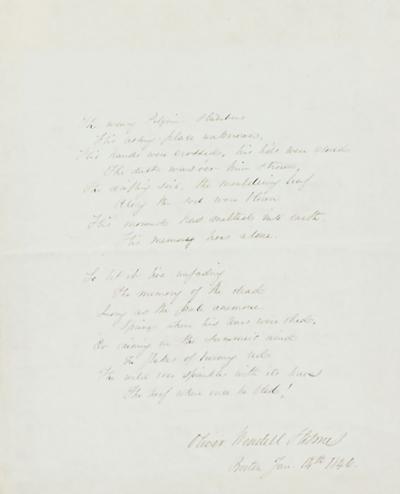 The weary Pilgrim slumbers
His resting place unknown,
His hands were crossed, his lids were closed
The dust was o'er him strown,
The drifting soil, the mouldering leaf
Along the sod were blown
His mound has melted into earth
His memory lives alone.
So let it live unfading
The memory of the dead
Long as the pale anemone
Springs where tears were shed,
Or raining in the summer's wind
In flakes of burning red
The wild rose sprinkles with its leaves
The turf where once he bled!
Oliver Wendell Holmes
Boston Jan. 14th 1846.